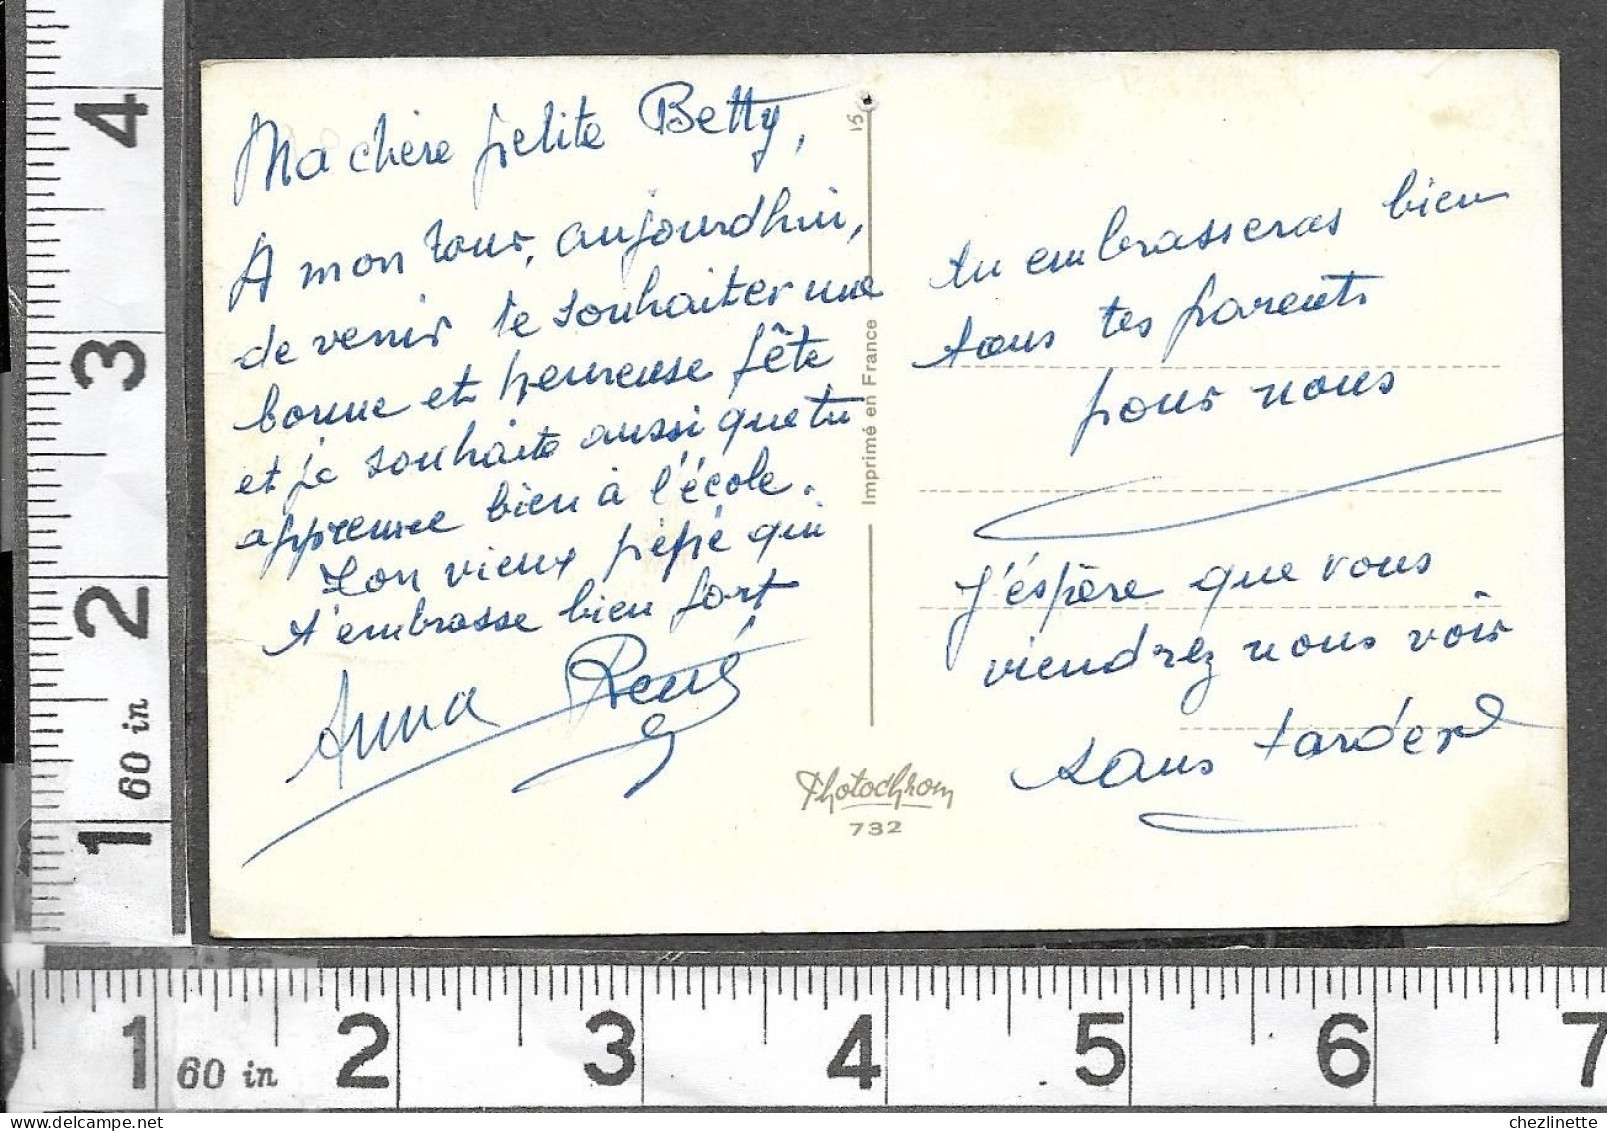 Ma chère petite Betty,
A mon tour, aujourdhui,
de venir te souhaiter une
bonne et heureuse fête
et je souhaite aussi que tu
apprenne bien à l'école.
Ton vieux pépé qui
t'embrasse bien fort
Anna René
15
Imprimé en France
Photochrom
732
tu embrasseras bien
tous tes parents
pour nous
J'éspère que vous
viendrez nous voir
sans tarder
4
3
2
60 in
1
1
60 in
2
3
4
5
6
7
chezlinette